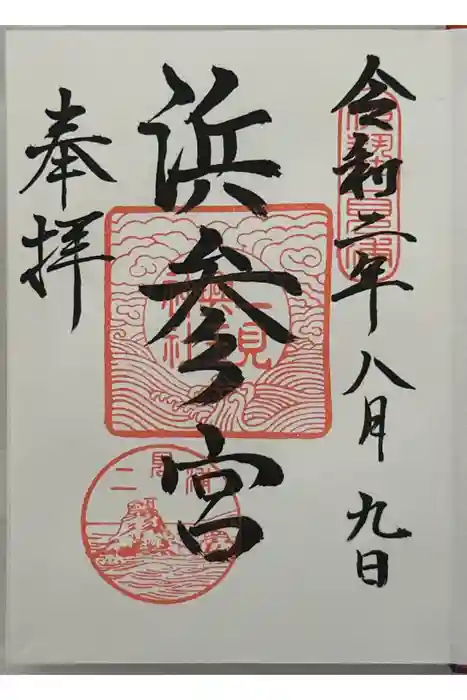 令和三年八月九日
浜参宮
奉拝
二見
興玉
神社